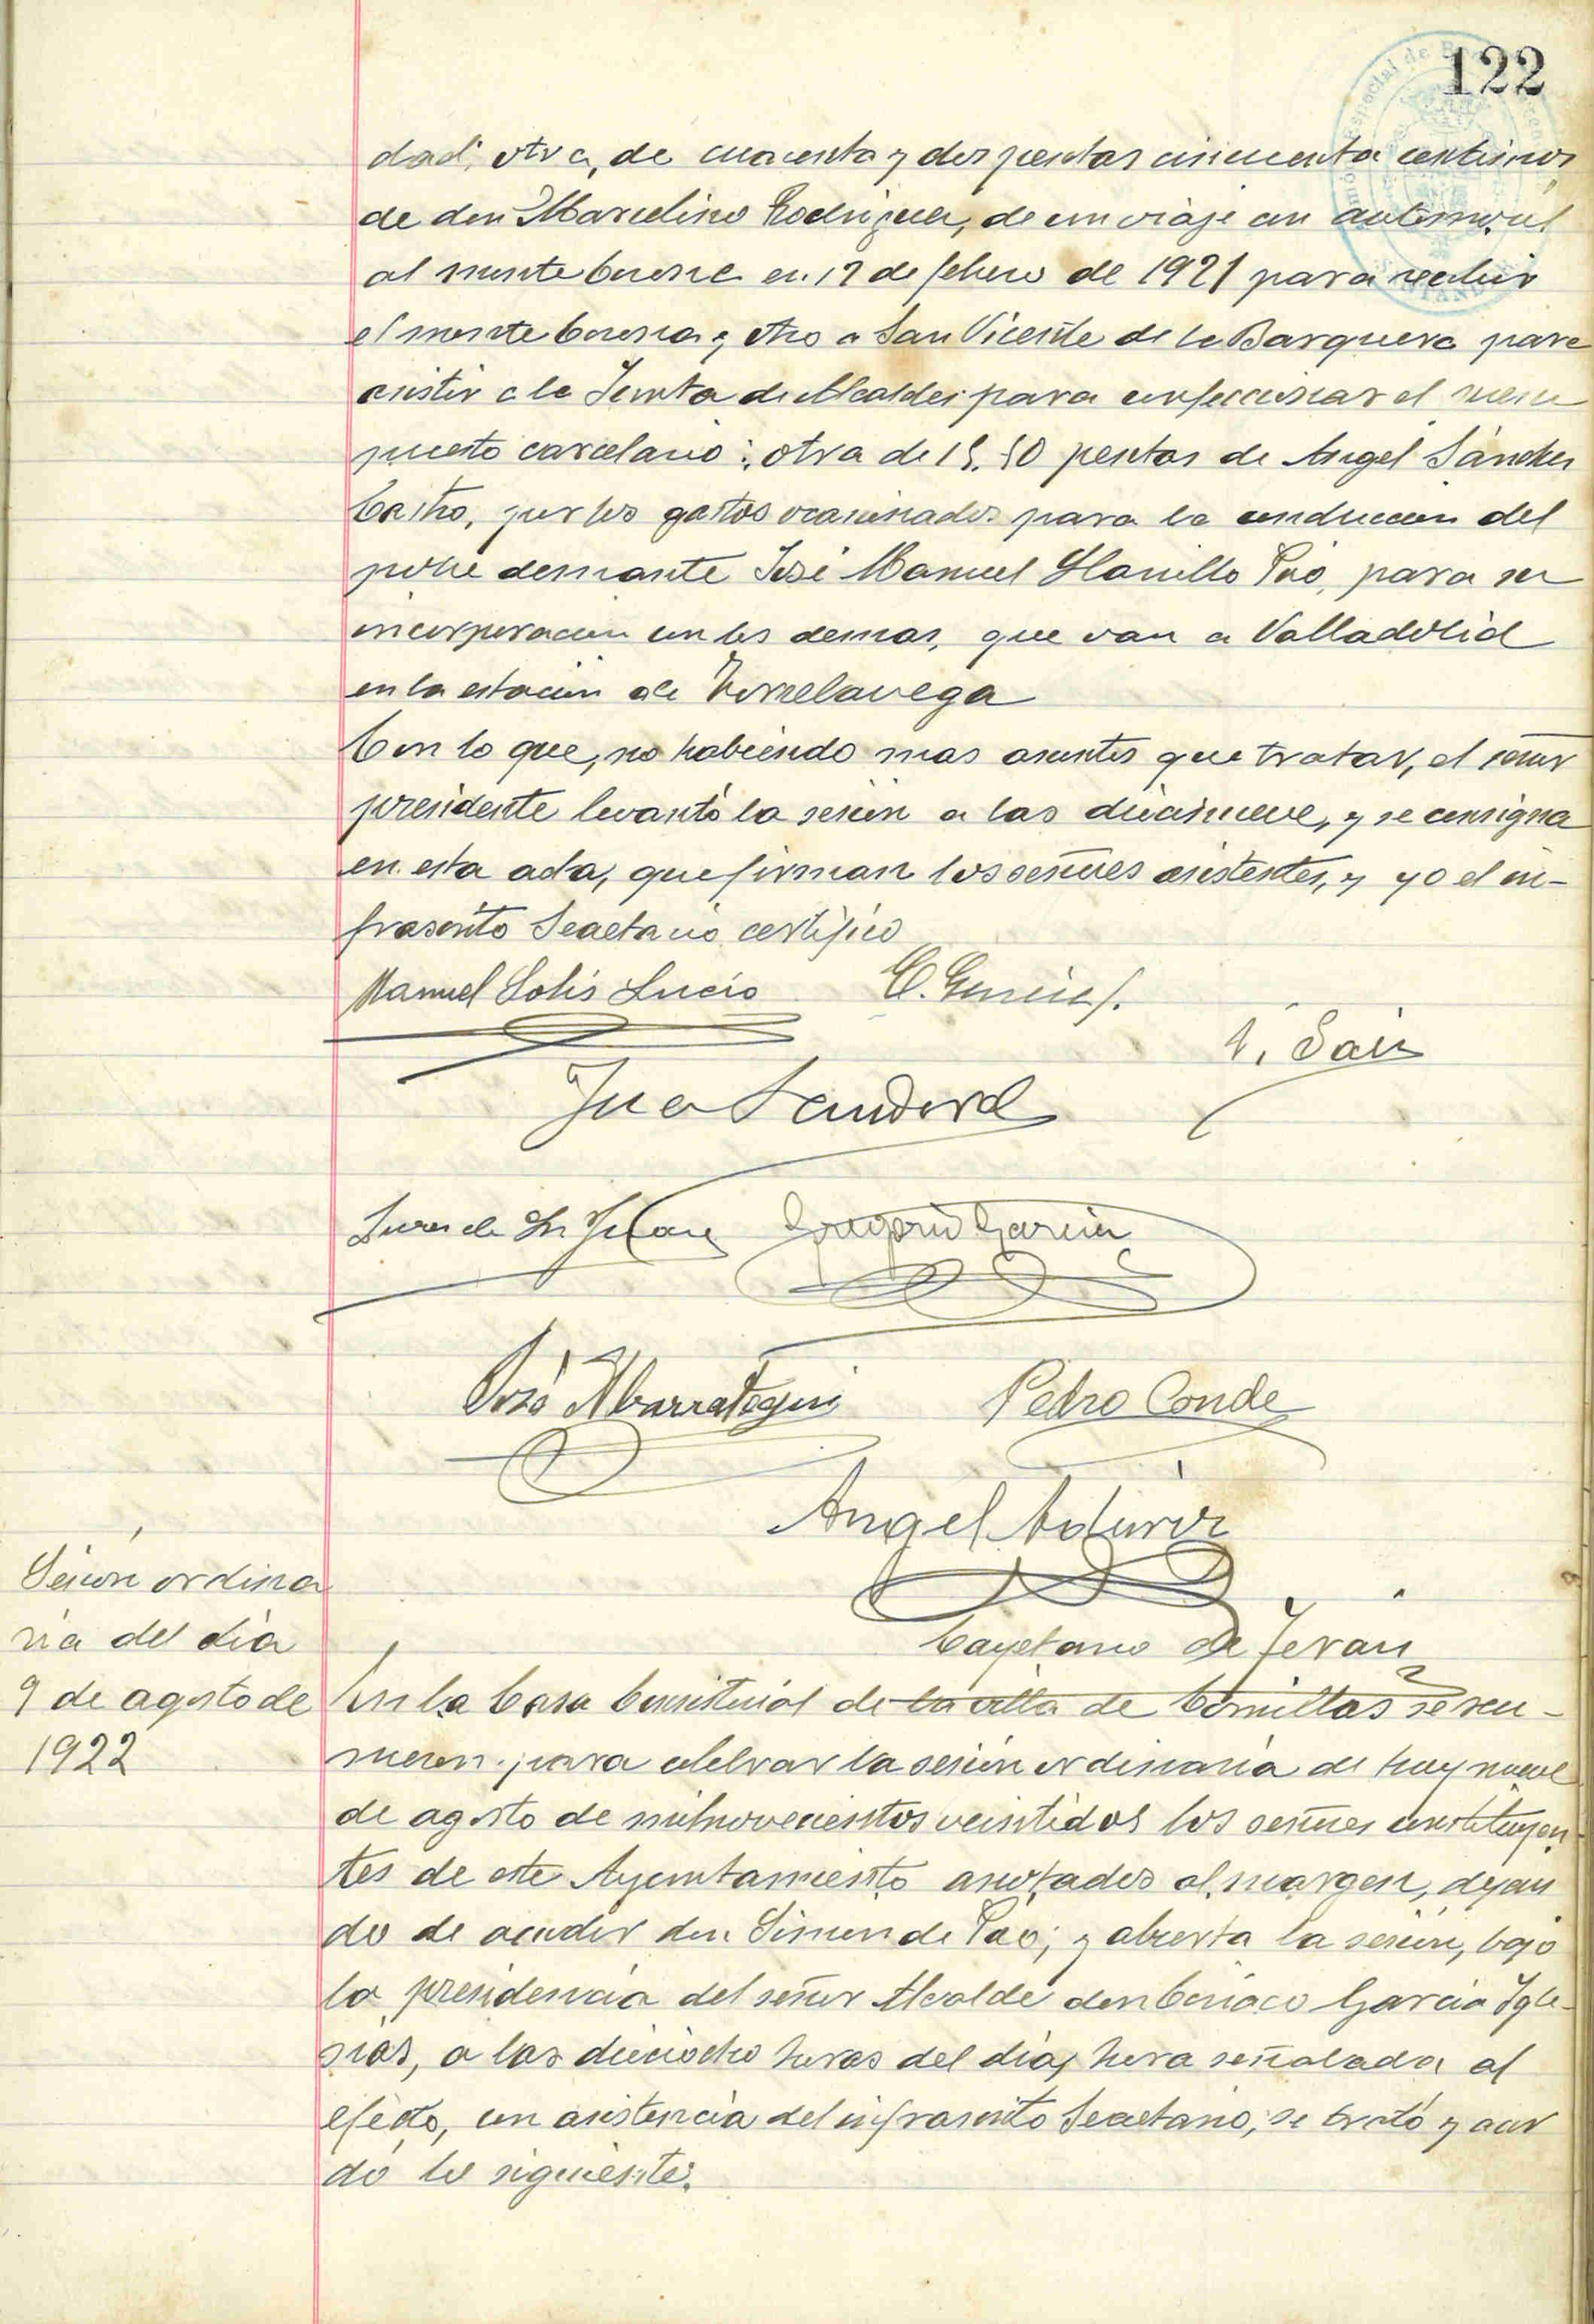 122
dad; otra, de cuarenta y dos pesetas cincuenta centimos
de don Marcelino Rodriguez, de un viaje en automovil
al monte Corona en 17 de febrero de 1921 para recibir
el monte Corona y otro a San Vicente de la Barquera para
asistir a la Junta de Alcaldes para confeccionar el presu
puesto carcelario; otra de 15.50 pesetas de Angel Sánchez
Castro, por los gastos ocasionados para la conduccion del
pobre demante José Manuel Llanillo Pao, para ser
incorporacion con los demas, que van a Valladolid
en la estacion de Torrelavega
Con lo que, no habiendo mas asuntos que tratar, el señor
presidente levantó la sesion a las diecinueve, y se consigna
en esta acta, que firman los señores asistentes, y yo el in-
frascrito Secretario certifico
Manuel Solis Lucio C. Garcia
V. Saiz
Juan Sandoval
Juan de
Gregorio Garcia
José Abarrategui Pedro Conde
Angel Aduriz
Cayetano de Terán
Sesion ordina
ria del dia
9 de agosto de
1922
En la Casa Consistorial de la villa de Comillas se reu-
nieron para celebrar la sesion ordinaria de hoy nueve
de agosto de mil novecientos veintidos los señores constituyen
tes de este Ayuntamiento anotados al margen, dejan
do de acudir don Simon de Pao; y abierta la sesion, bajo
la presidencia del señor Alcalde don Ciriaco Garcia Igle-
sias, a las dieciocho horas del dia, hora señalada al
efecto, con asistencia del infrascrito Secretario, se trató y acor
dó lo siguiente: